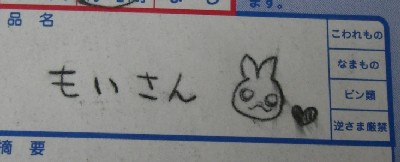 ます。
品名
もいさん
こわれもの
なまもの
ビン類
逆さま厳禁
摘要